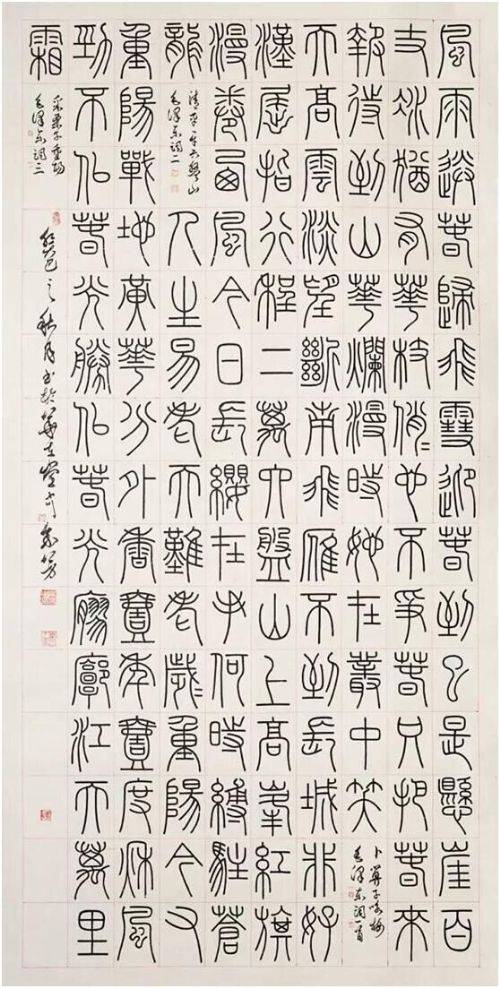 風雨送春歸飛雪迎春到已是懸崖百
丈冰猶有華枝俏=也不爭春只把春來
報待到山華爛漫時她在叢中笑
卜算子咏梅
毛澤東詞一首
天高雲淡望斷南飛雁不到長城非好
漢屈指行程二萬六盤山上高峯紅旗
漫卷西風今日長纓在手何時縛駐蒼
龍
清平樂六盤山
毛澤東詞二
人生易老天難老歲重陽今又
重陽戰地黃華分外香壹年壹度秋風
勁不似春光勝似春光寥廓江天萬里
霜
采桑子重陽
毛澤東詞三
之秋月書於